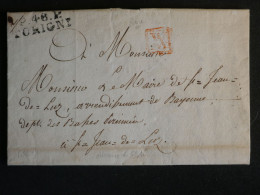 P.48.P.
TORIGNI
A Monsieur
Monsieur Le Maire de St Jean-
de-Luz, arrondissement de Bayonne
dépt. des Basses Pyrénées
à St Jean-de-Luz